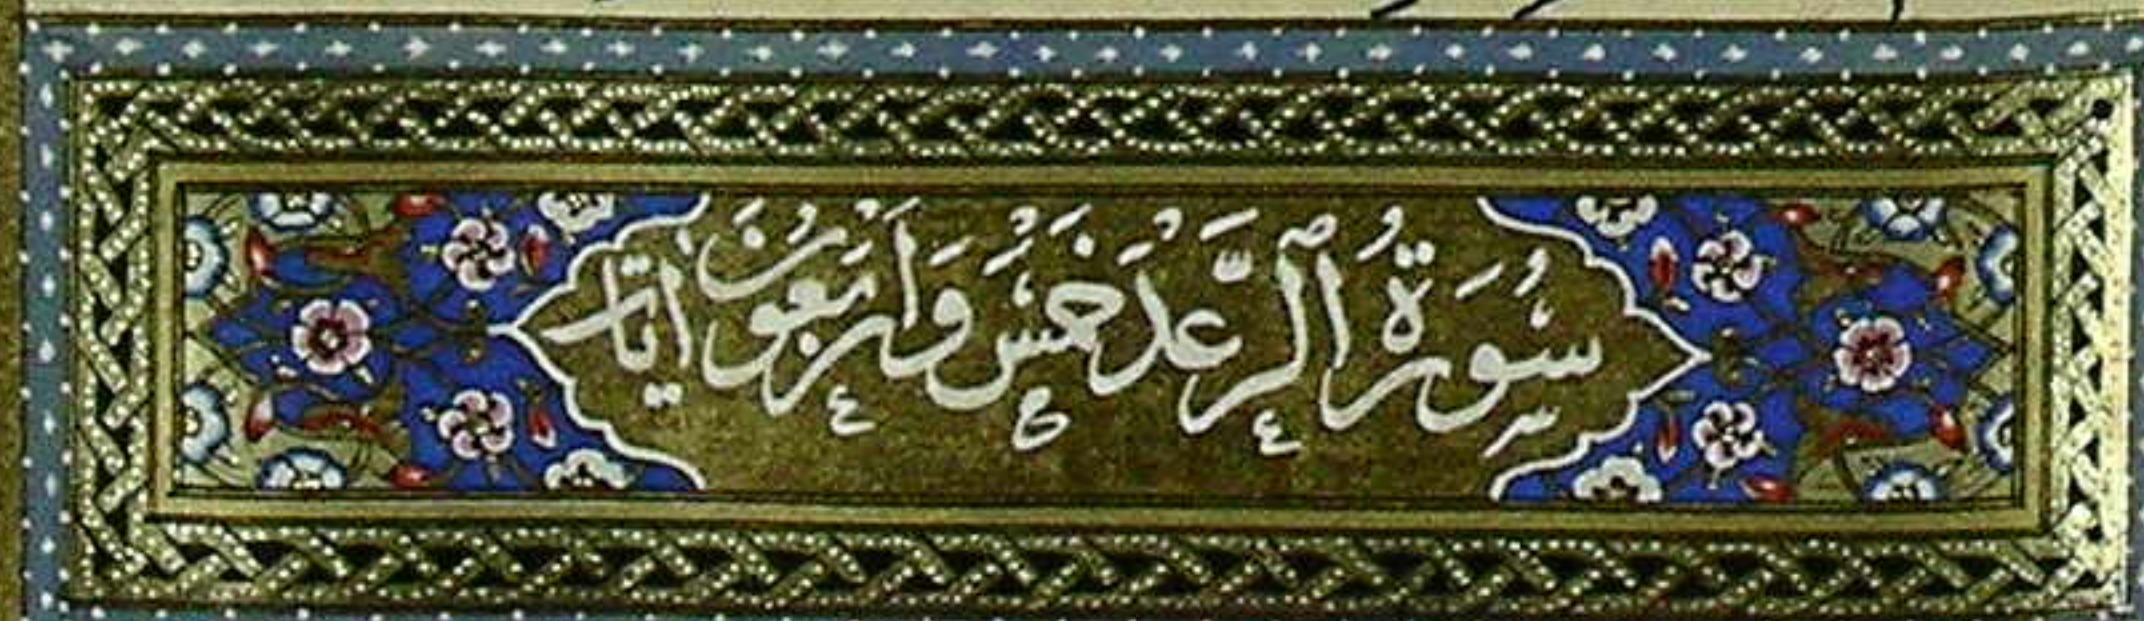 سُورَةُ ٱلرَّعْدِ خَمْسٌ وَأَرْبَعُونَ اٰيَات